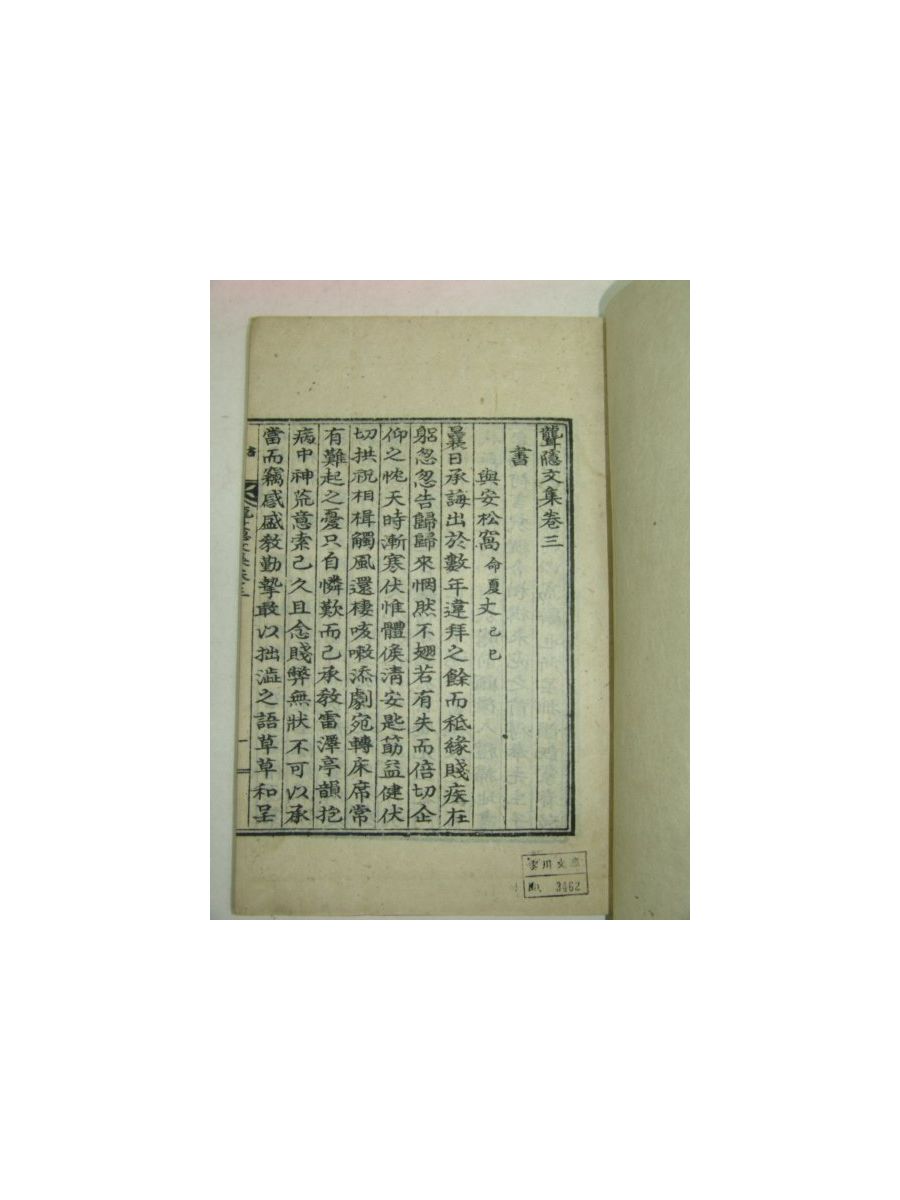 聾隱文集卷三
書
與安松窩命夏丈己巳
曩日承誨出於數年違拜之餘而秪緣賤疾在
躬忽忽告歸歸來惘然不翅若有失而倍切企
仰之忱天時漸寒伏惟體候淸安匙筯益健伏
切拱祝相楫觸風還棲咳嗽添劇宛轉床席常
有難起之憂只自憐歎而已承敎雷澤亭韻抱
病中神荒意索已久且念賤弊無狀不可以承
當而竊感盛敎勤摯敢以拙澁之語草草和呈
書
一
文庫
No. 3462